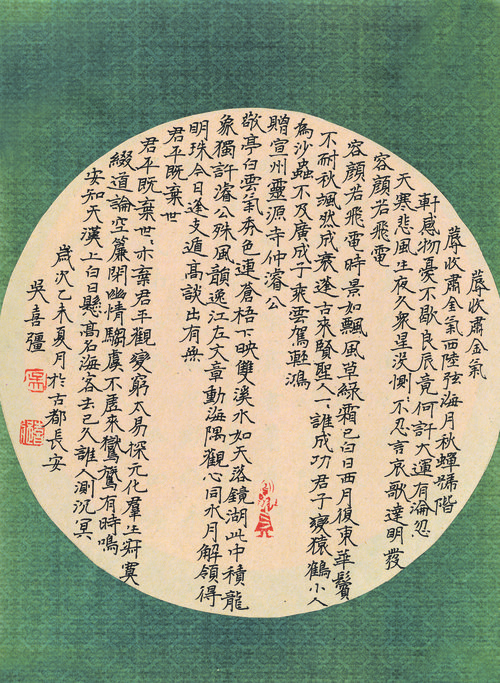 蓐收肅金氣
蓐收肅金氣西陸弦海月秋蟬號階
軒感物憂不歇良辰竟何許大運有淪忽
天寒悲風生夜久衆星没惻々不忍言哀歌達明發
容顏若飛電
容顏若飛電時景如飄風草綠霜已白日西月復東華鬢
不耐秋颯然成衰蓬古來賢聖人一々誰成功君子變猿鶴小人
為沙蟲不及廣成子乘雲駕輕鴻
贈宣州靈源寺仲濬公
敬亭白雲氣秀色連蒼梧下映雙溪水如天落鏡湖此中積龍
象獨許濬公殊風韻逸江左文章動海隅觀心同水月解領得
明珠今日逢支遁高談出有無
君平既棄世
君平既棄世々亦棄君平觀變窮太易探元化羣生寂寞
綴道論空簾閉幽情騶虞不虛來鸑鷟有時鳴
安知天漢上白日懸高名海客去已久誰人測沉冥
歲次乙未夏月於古都長安
吳喜疆